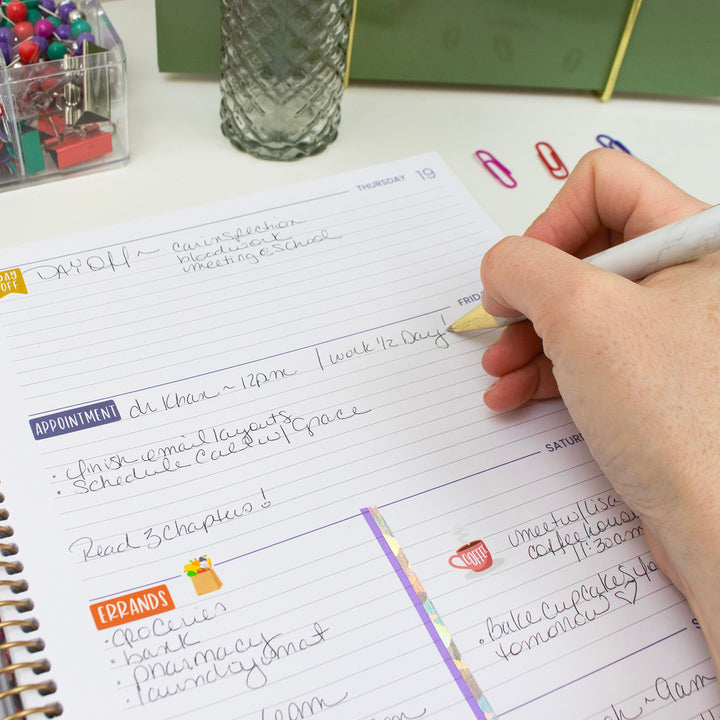 THURSDAY 19
DAY OFF
DAY OFF ~ car inspection
bloodwork
meeting @ School
FRID
APPOINTMENT
dr Khan ~ 12pm / work 1/2 Day!
• finish email layouts
• Schedule Call w/ Grace
Read 3 Chapters!
SATUR
ERRANDS
• groceries
• bank
• pharmacy
• laundry mat
COFFEE
meet w/ Lisa
coffeehouse
11:30am
• bake cupcakes
tomorrow ♡
S
am
~ 9am